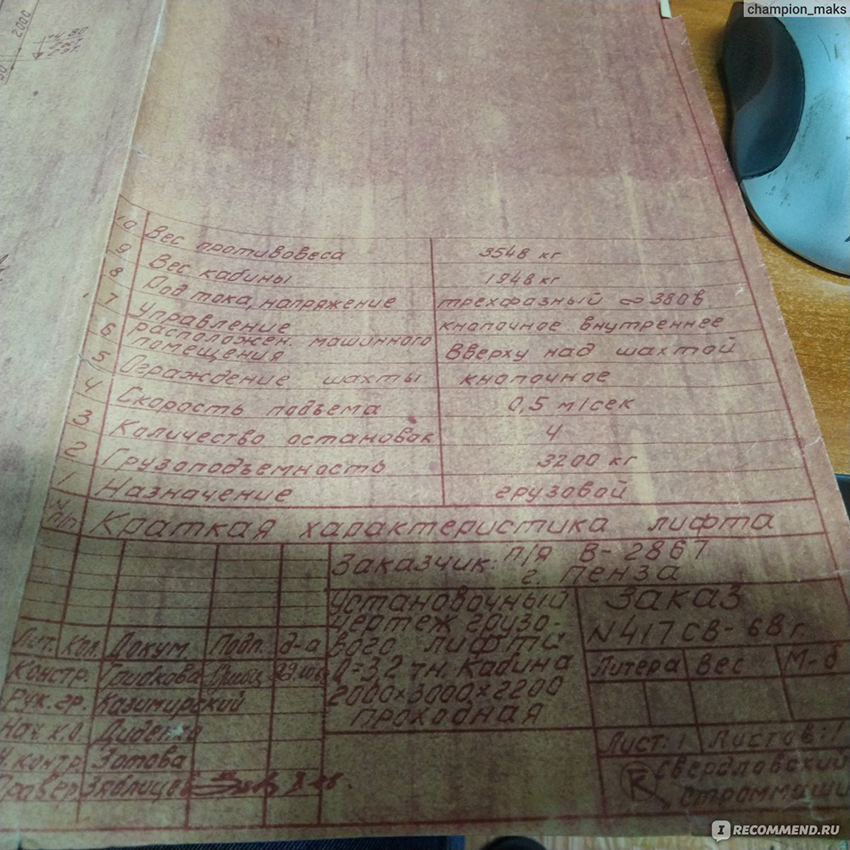 champion_maks
2000
10 Вес противовеса 3548 кг
9 Вес кабины 1948 кг
8 Род тока, напряжение трехфазный ∞ 380в
7 Управление кнопочное внутреннее
6 расположен. машинного
помещения Вверху над шахтой
5 Ограждение шахты кнопочное
4 Скорость подъема 0,5 м/сек
3 Количество остановок 4
2 Грузоподъемность 3200 кг
1 Назначение грузовой
N п/п Краткая характеристика лифта
Заказчик: п/я В-2867
г. Пенза
установочный
чертеж грузо-
вого лифта
Q=3,2 тн. Кабина
2000×3000×2200
проходная
Заказ
N417СВ-68г.
Литера Вес М-б
Лист: 1 Листов: 1
Свердловский
Строммаши
Лит. Кол. Докум. Подп. д-а
Констр. Грибкова
Рук. гр. Казимирский
Нач. К.О.
Н. контр. Зотова
Провер. Зяблицев
IRECOMMEND.RU